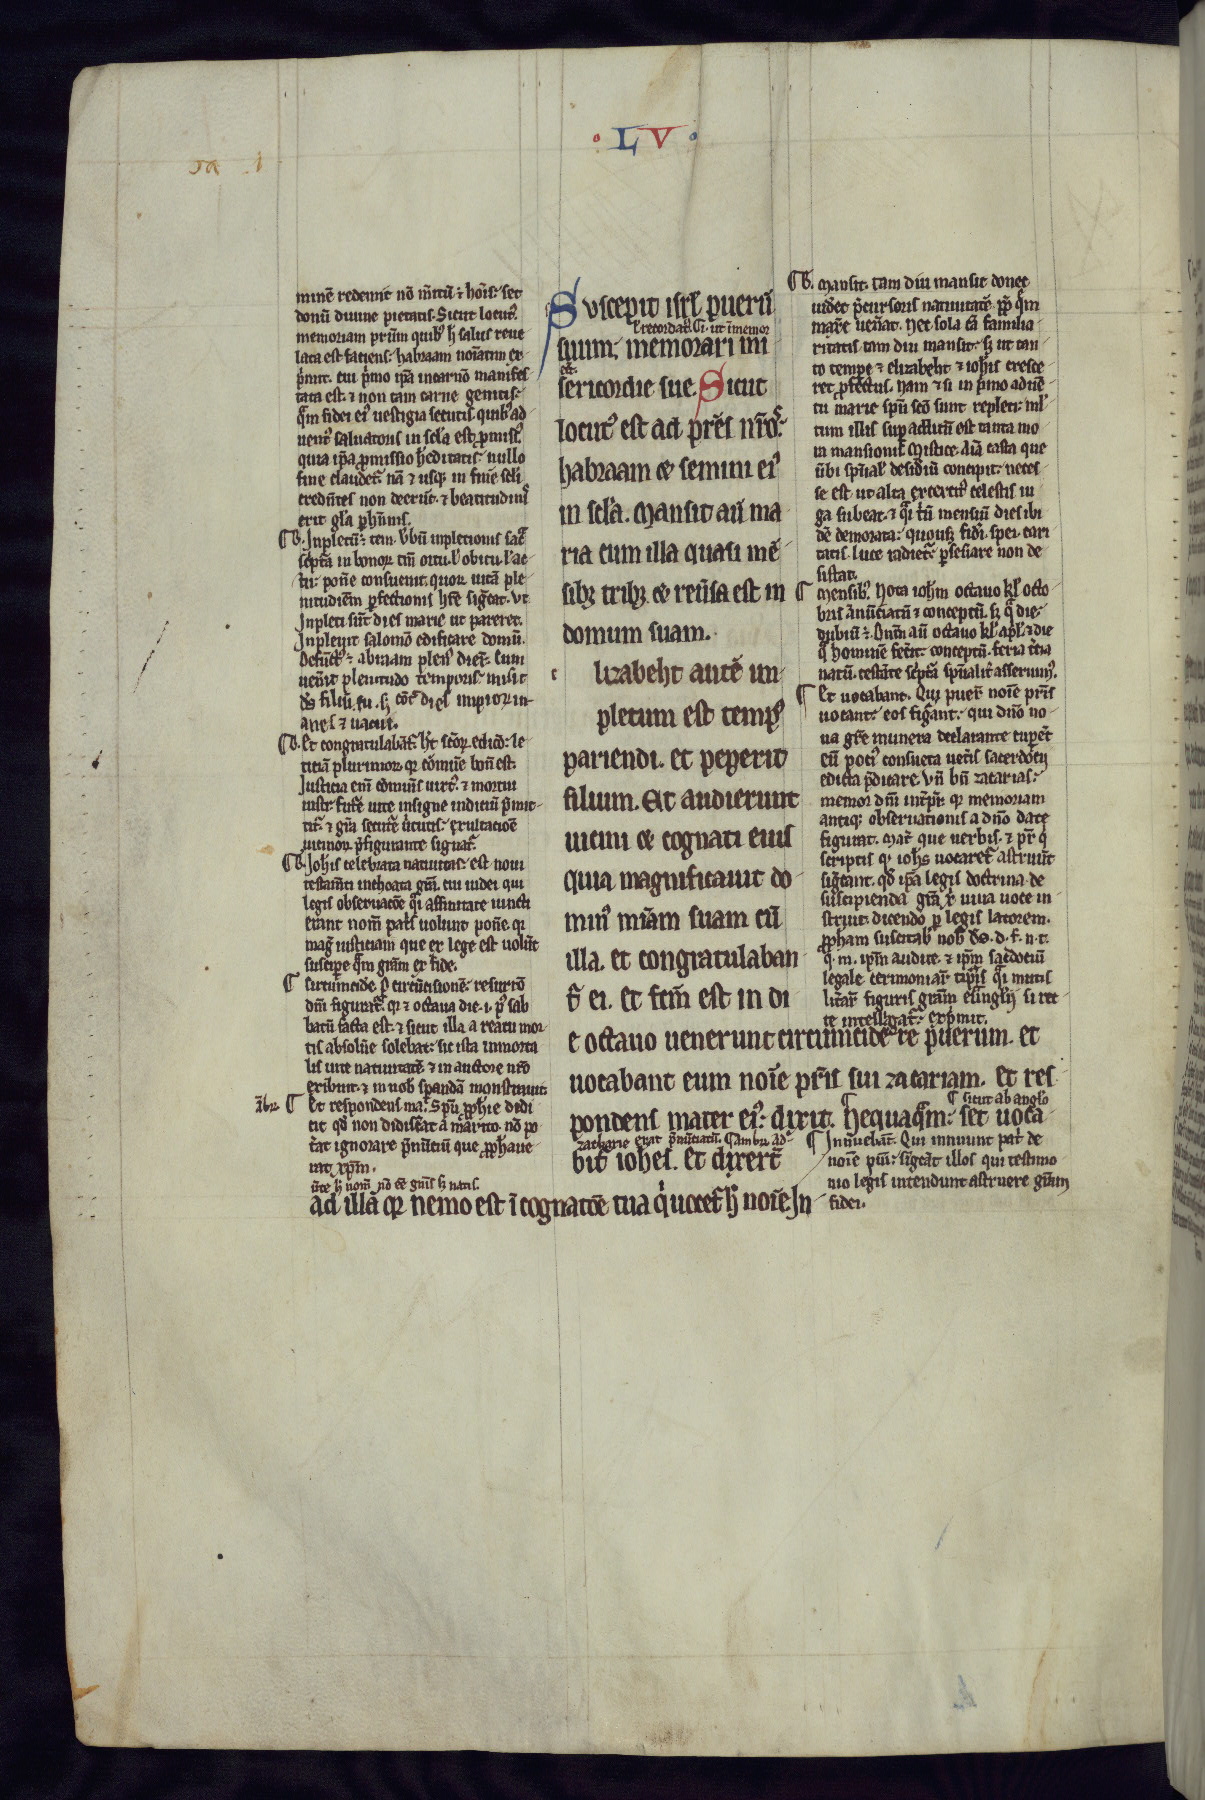 · L V ·
minē redemit nō m̄itū ⁊ hōis set
donū diuine pietatis. Sicut locut᷒
memoriam prūm quib᷒ h̄ salus reue
lata est faciens habraam noīatim ex-
p̄mit. cui p̄mo ip̄a incarnō manifes
tata est. ⁊ non tam carne genitis
q̄m fidei ei᷒ uestigia secutis. quib᷒ ad
uent᷒ saluatoris in sc̄la est ꝓmiss᷒
quia ip̄a ꝓmissio h̄editatis nullo
fine claudet᷒. nā ⁊ usq᷒ in finē sc̄li
credn̄tes non deerūt. ⁊ beatitudinis
erit gl̄a ꝑhn̄nis.
¶ B. Inpletū
septa in bonor tm̄ ortu. l᷒ obitu. l᷒ ac-
tu pone consueuit. quor uitā ple-
nitudiēm ꝑfectionis h̄re siḡcat. vt
Inpleti sūt dies marie ut pareret.
Inpleuit salomō edificare domū.
Defūct᷒ abraam plen᷒ dier. Cum
uen̄it plenitudo temporis misit
dš filiū su. sꝫ cōt᷒ dies impior in-
anes ⁊ uacui.
¶ B. Et congratulabāt᷒
titiā plurimor. qꝛ cōmūe bonū est.
Iusticia eni cōmuīs uirt᷒. ⁊ in ortu
iusti future uite insigne indiciū p̄mit-
tit᷒. ⁊ gr̄a secuture uirtutis exultatiōe
uicinor p̄figurante signat᷒.
¶ B. Ioh̄is celebrata natiuitas est noui
testam̄ti inchoata gr̄a. cui iudei qui
legis obseruatiōe q̄i affinitate iuncti
erant nom̄ pat̄s uolunt pone. qꝛ
mag̅ iusticiam que ex lege est uolūt
suscipe q̄m gr̄am ex fide.
¶ circumcide. ꝑ circūcisionē resurrō
dn̄i figurat᷒. qꝛ ⁊ octaua die .i. ꝑ sab
batū facta est. ⁊ sicut illa a reatu mor
tis absolue solebat sic ista inmorta
lis uite natiuitatē ⁊ in auctore nr̄o
exibuit. ⁊ in nob̄ spandā monstrauit.
ābr. ¶ Et respondens ma. Spū ꝓphie didi
cit qd̄ non didiscāt a marito. nō po
tāt ignorare p̄nūtiū que ꝓphaue
rat xp̄m.
Suscepit isrl̄ puerū
l᷒ recordat᷒. Gi. ut īmemor
suum; memorari mi
sericordie sue. Sicut
locut᷒ est ad pr̄es nr̄os
habraam & semini ei᷒
in sc̄la. Mansit aū ma
ria cum illa quasi mē
sibꝫ tribꝫ. & reūsa est in
domum suam.
e lizabeht autē im-
pletum est temp᷒
pariendi. et peperit
filium. Et audierunt
uicini & cognati eius
quia magnificauit do-
min᷒ miam suam cū
illa. et congratulaban
t᷒ ei. Et fc̄m est in di
e octauo uenerunt circumcidere puerum. et
uocabant eum noīe pr̄is sui zacariam. Et res
¶ sicut ab anglo
pondens mater ei᷒ dixit. Nequaq̄m set uoca-
zacharie erat p̄nūciatū. ¶ ambr. ad-
bit᷒ iohes. Et dixert̄
ūte h̄ nom̄ nō ēē gn̄is sꝫ uatis.
ad illā qꝛ nemo est ī cognatiōe tua q̇ uocet᷒ h̄ noīe. In-
¶ B. Mansit. tam diu mansit donec
uidēt p̄cursoris natiuitatē ꝓp̄ q̄m
marie ueīat. nec sola cā familia-
ritatis tam diu mansit. sꝫ ut tan-
to tempe ⁊ elizabeht ⁊ ioh̄is cresce
ret ꝓfectus. Nam ⁊ si in p̄mo aduē-
tu marie spū sc̄o sunt repleti ml̄
tum illis sup additū est tanta mo-
ra mansionis. Mistice. Aīa casta que
ūbi spūal᷒ desid̄iū concipit. neces-
se est ut alta exerciti᷒ celestis iu
ga subeat. ⁊ q̄i tū mensiū dies ibi-
dē demorata. quousq fidei. spei. cari
tatis. luce radiet᷒ ꝑseūare non de
sistat.
¶ Mensib᷒. Nota ioh̄m octauo kl̄ octo-
bris ānūciatū ⁊ conceptū. sꝫ q̇ die
dubiū ē. Dn̄m aū octauo kl̄ apl̄. ⁊ die
q̇ hominē fecit conceptū. feria tc̄ia
natū. testāte sc̄pta spūalit̄ asserim᷒.
¶ Et uocabant. Qui puer noīe pr̄is
uocant eos figāant. qui dn̄o no-
ua gr̄e munera declarante cupēt
eū poti᷒ consueta uet̄is sacerdotii
edicta p̄dicare. Vn̄ bn̄ zacarias
memor dn̄i int̄pr̄. qꝛ memoriam
antiq᷒ obseruationis a dn̄o date
figurat. Mat̄ que uerbis. ⁊ pr̄ q̇
scriptis qꝛ ioh̄s uocaret᷒ astruūt
sig̅cant. qd̄ ip̄a legis doctrina de
suscipienda gr̄a x̄ uiua uoce in
struit. dicendo ꝑ legis latorem.
ꝓpham suscitab᷒ nob̄ dš. d. f. n. t.
q̄. m. ip̄m audite. ⁊ ip̄m sac̄dotiū
legale cerimoniar tipis q̄i mutis
lit̄ar figuris gr̄am euāglij si rec-
te intelligat᷒ exp̄mit.
¶ Innuebāt. Qui innuunt pat̄ de
noīe pūi sig̅cāt illos qui testimo-
nio legis intendunt astruere gr̄am
fidei.